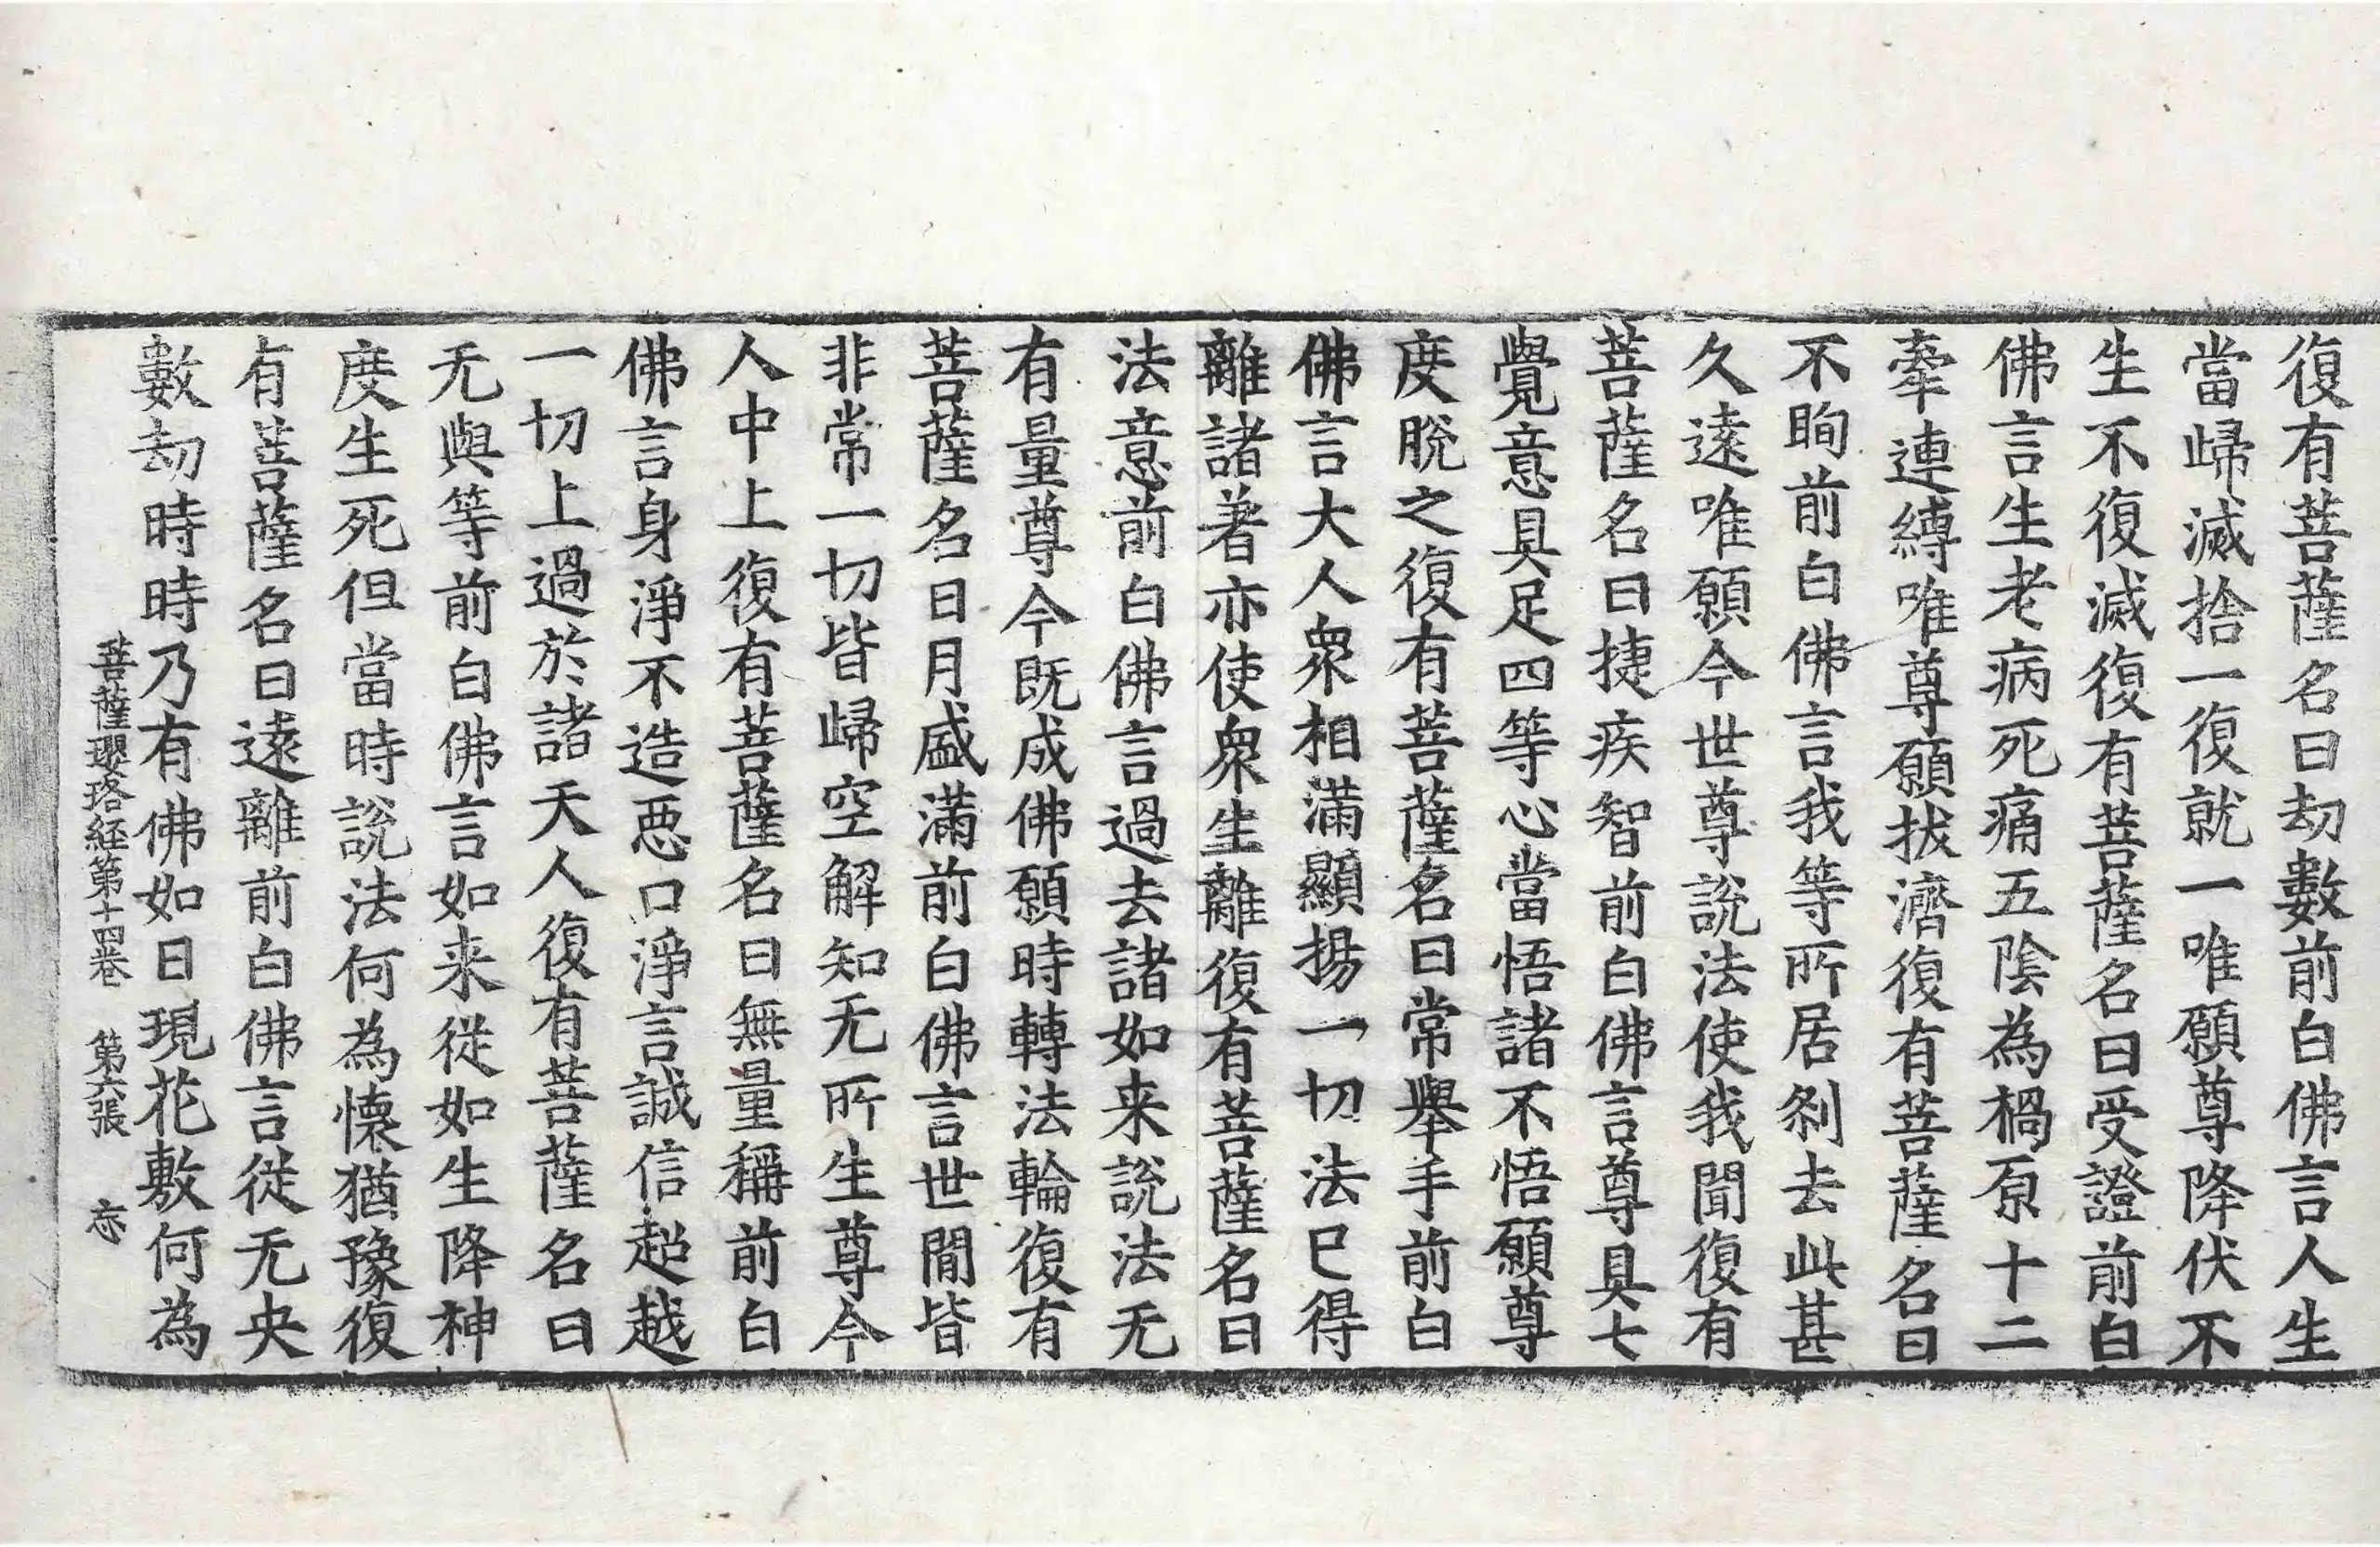 復有菩薩名曰劫數前白佛言人生
當歸滅捨一復就一唯願尊降伏不
生不復滅復有菩薩名曰受證前白
佛言生老病死痛五陰為禍原十二
牽連縛唯尊願拔濟復有菩薩名曰
不眴前白佛言我等所居剎去此甚
久遠唯願今世尊說法使我聞復有
菩薩名曰捷疾智前白佛言尊具七
覺意具足四等心當悟諸不悟願尊
度脫之復有菩薩名曰常舉手前白
佛言大人衆相滿顯揚一切法已得
離諸著亦使衆生離復有菩薩名曰
法意前白佛言過去諸如来說法无
有量尊今既成佛願時轉法輪復有
菩薩名曰月盛滿前白佛言世間皆
非常一切皆歸空解知无所生尊今
人中上復有菩薩名曰無量稱前白
佛言身淨不造惡口淨言誠信超越
一切上過於諸天人復有菩薩名曰
无與等前白佛言如来從如生降神
度生死但當時說法何為懷猶豫復
有菩薩名曰遠離前白佛言從无央
數劫時時乃有佛如日現花敷何為
菩薩瓔珞経第十四卷 第六張 忘